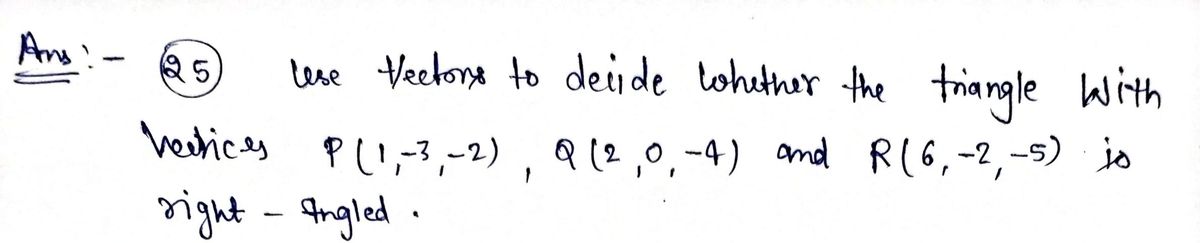 Ans :- (25) Use Vectors to decide whether the triangle With
Vertices P(1,-3,-2), Q(2,0,-4) and R(6,-2,-5) is
right - Angled.